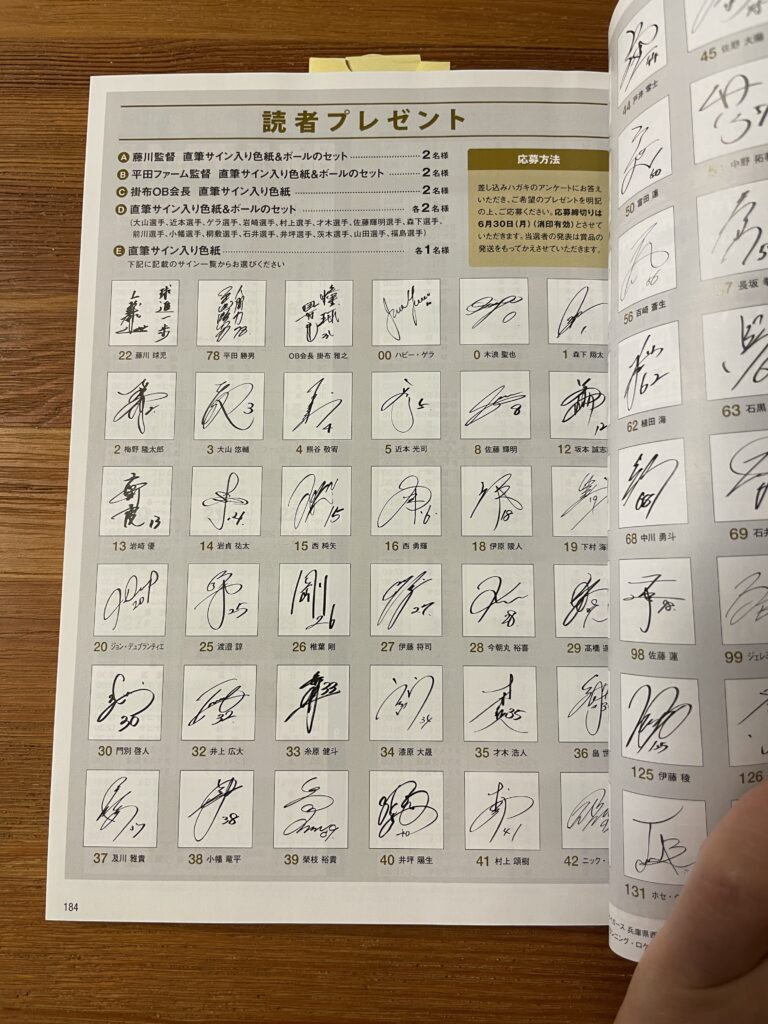 読者プレゼント
A 藤川監督 直筆サイン入り色紙&ボールのセット 2名様
B 平田ファーム監督 直筆サイン入り色紙&ボールのセット 2名様
C 掛布OB会長 直筆サイン入り色紙 2名様
D 直筆サイン入り色紙&ボールのセット 各2名様
(大山選手、近本選手、ゲラ選手、岩崎選手、村上選手、才木選手、佐藤輝明選手、森下選手、
前川選手、小幡選手、桐敷選手、石井選手、井坪選手、茨木選手、山田選手、福島選手)
E 直筆サイン入り色紙 各1名様
下記に記載のサイン一覧からお選びください
応募方法
差し込みハガキのアンケートにお答え
いただき、ご希望のプレゼントを明記
の上、ご応募ください。応募締切りは
6月30日(月)(消印有効)とさせて
いただきます。当選者の発表は賞品の
発送をもってかえさせていただきます。
22 藤川 球児
78 平田 勝男
OB会長 掛布 雅之
00 ハビー・ゲラ
0 木浪 聖也
1 森下 翔太
2 梅野 隆太郎
3 大山 悠輔
4 熊谷 敬宥
5 近本 光司
8 佐藤 輝明
12 坂本 誠志
13 岩崎 優
14 岩貞 祐太
15 西 純矢
16 西 勇輝
18 伊原 陵人
19 下村 海
20 ジョン・デュプランティエ
25 渡邉 諒
26 椎葉 剛
27 伊藤 将司
28 今朝丸 裕喜
29 髙橋
30 門別 啓人
32 井上 広大
33 糸原 健斗
34 漆原 大晟
35 才木 浩人
36 畠 世
37 及川 雅貴
38 小幡 竜平
39 榮枝 裕貴
40 井坪 陽生
41 村上 頌樹
42 ニック・
184
44 戸井 零士
45 佐野 大陽
50 富田 蓮
中野 拓
56 百﨑 蒼生
長坂
62 植田 海
63 石黒
68 中川 勇斗
69 石井
98 佐藤 蓮
99 ジェレミ
125 伊藤 稜
126
131 ホセ・